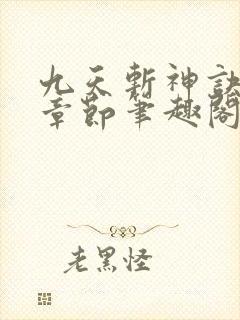 九天斬神訣
章節筆趣閣
老黑怪